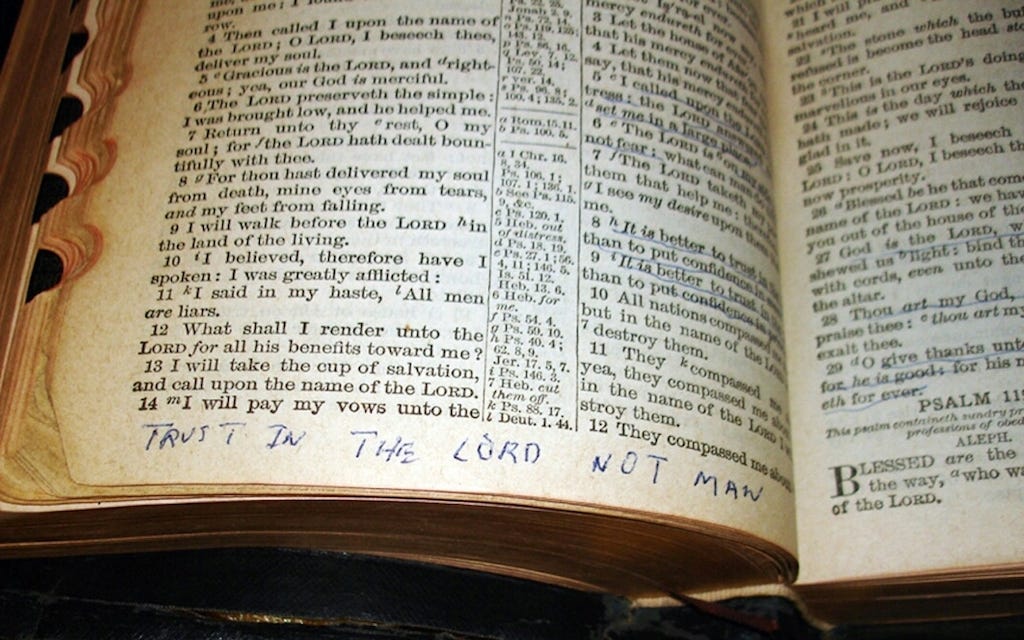 upon me: I
row.
4 Then called I upon the name of
the LORD; O LORD, I beseech thee,
deliver my soul.
5 eGracious is the LORD, and dright-
eous; yea, our God is merciful.
6 The LORD preserveth the simple:
I was brought low, and he helped me.
7 Return unto thy erest, O my
soul; for fthe LORD hath dealt boun-
tifully with thee.
8 gFor thou hast delivered my soul
from death, mine eyes from tears,
and my feet from falling.
9 I will walk before the LORD hin
the land of the living.
10 iI believed, therefore have I
spoken: I was greatly afflicted:
11 kI said in my haste, lAll men
are liars.
12 What shall I render unto the
LORD for all his benefits toward me?
13 I will take the cup of salvation,
and call upon the name of the LORD.
14 mI will pay my vows unto the
143. 2.
p Ps. 86. 16.
107. 22.
r ver. 14.
s Ps. 96. 8;
100. 4; 135. 2.
a Rom. 15. 11.
b Ps. 100. 5.
a 1 Chr. 16.
8, 34.
Ps. 106. 1;
107. 1; 136. 1.
b See Ps. 115.
9, &c.
c Ps. 120. 1.
5 Heb. out
of distress.
d Ps. 18. 19.
e Ps. 27. 1; 56.
4, 11; 146. 5.
Is. 51. 12.
Heb. 13. 6.
6 Heb. for
me.
f Ps. 54. 4.
g Ps. 59. 10.
h Ps. 40. 4;
62. 8, 9.
Jer. 17. 5, 7.
i Ps. 146. 3.
7 Heb. cut
them off.
k Ps. 88. 17.
l Deut. 1. 44.
mercy endureth for
3 Let the house of
that his mercy
4 Let them now
say, that his mercy
5 cI called upon the
tress: the LORD
dset me in a large place.
6 eThe LORD is on
not fear: what can man
7 fThe LORD taketh my
them that help me:
gI see my desire upon
me.
8 hIt is better to trust in
than to put confidence in
9 iIt is better to trust in
than to put confidence in
10 All nations compassed me
but in the name of the LORD
7destroy them.
11 They kcompassed me
yea, they compassed me
in the name of the LORD I
stroy them.
12 They compassed me about
which
21 I will praise
heard me, and
salvation.
22 The stone which the
refused is become the head
the corner.
23 This is the LORD's doing
marvellous in our eyes.
24 This is the day which the
hath made; we will rejoice
glad in it.
25 Save now, I beseech
LORD: O LORD, I beseech
now prosperity.
26 Blessed be he that
name of the LORD: we
you out of the house of the
27 God is the LORD,
shewed us blight: bind the
with cords, even unto the
the altar.
28 Thou art my God,
praise thee: cthou art my
exalt thee.
29 dO give thanks unto
for he is good: for his
eth for ever.
PSALM
This psalm containeth sundry
professions of
ALEPH.
BLESSED are the
the way, awho
of the LORD.
TRUST IN THE LORD NOT MAN